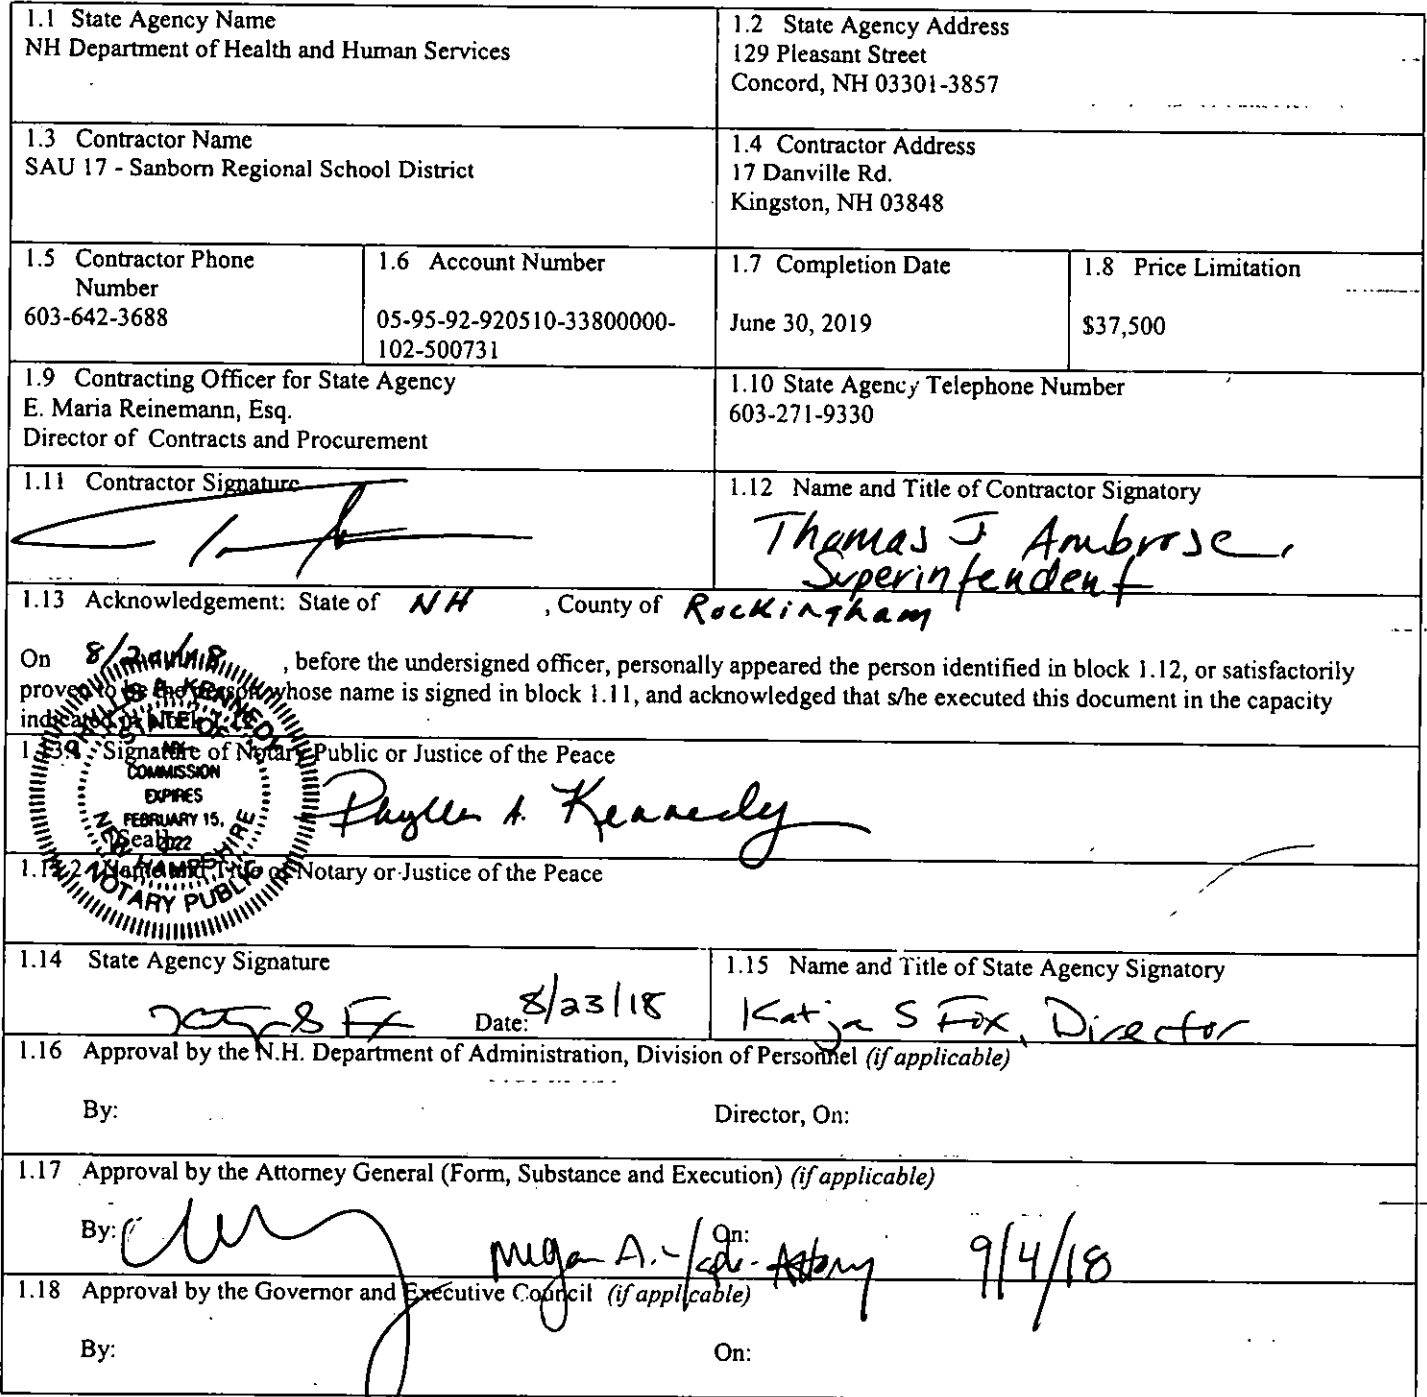 1.1 State Agency Name
NH Department of Health and Human Services
1.2 State Agency Address
129 Pleasant Street
Concord, NH 03301-3857
1.3 Contractor Name
SAU 17 - Sanborn Regional School District
1.4 Contractor Address
17 Danville Rd.
Kingston, NH 03848
1.5 Contractor Phone
Number
603-642-3688
1.6 Account Number
05-95-92-920510-33800000-
102-500731
1.7 Completion Date
June 30, 2019
1.8 Price Limitation
$37,500
1.9 Contracting Officer for State Agency
E. Maria Reinemann, Esq.
Director of Contracts and Procurement
1.10 State Agency Telephone Number
603-271-9330
1.11 Contractor Signature
1.12 Name and Title of Contractor Signatory
Thomas J Ambrose,
Superintendent
1.13 Acknowledgement: State of NH , County of Rockingham
On , before the undersigned officer, personally appeared the person identified in block 1.12, or satisfactorily
proven to be the person whose name is signed in block 1.11, and acknowledged that s/he executed this document in the capacity
indicated in block 1.12
1.13.1 Signature of Notary Public or Justice of the Peace
PHYLLIS A. KENNEDY
STATE OF
MY
COMMISSION
EXPIRES
FEBRUARY 15,
2022
NEW HAMPSHIRE
NOTARY PUBLIC
[Seal]
Phyllis A. Kennedy
1.13.2 Name and Title of Notary or Justice of the Peace
1.14 State Agency Signature
Date: 8/23/18
1.15 Name and Title of State Agency Signatory
Katja S Fox, Director
1.16 Approval by the N.H. Department of Administration, Division of Personnel (if applicable)
By: Director, On:
1.17 Approval by the Attorney General (Form, Substance and Execution) (if applicable)
By: Megan A. On: 9/4/18
1.18 Approval by the Governor and Executive Council (if applicable)
By: On: